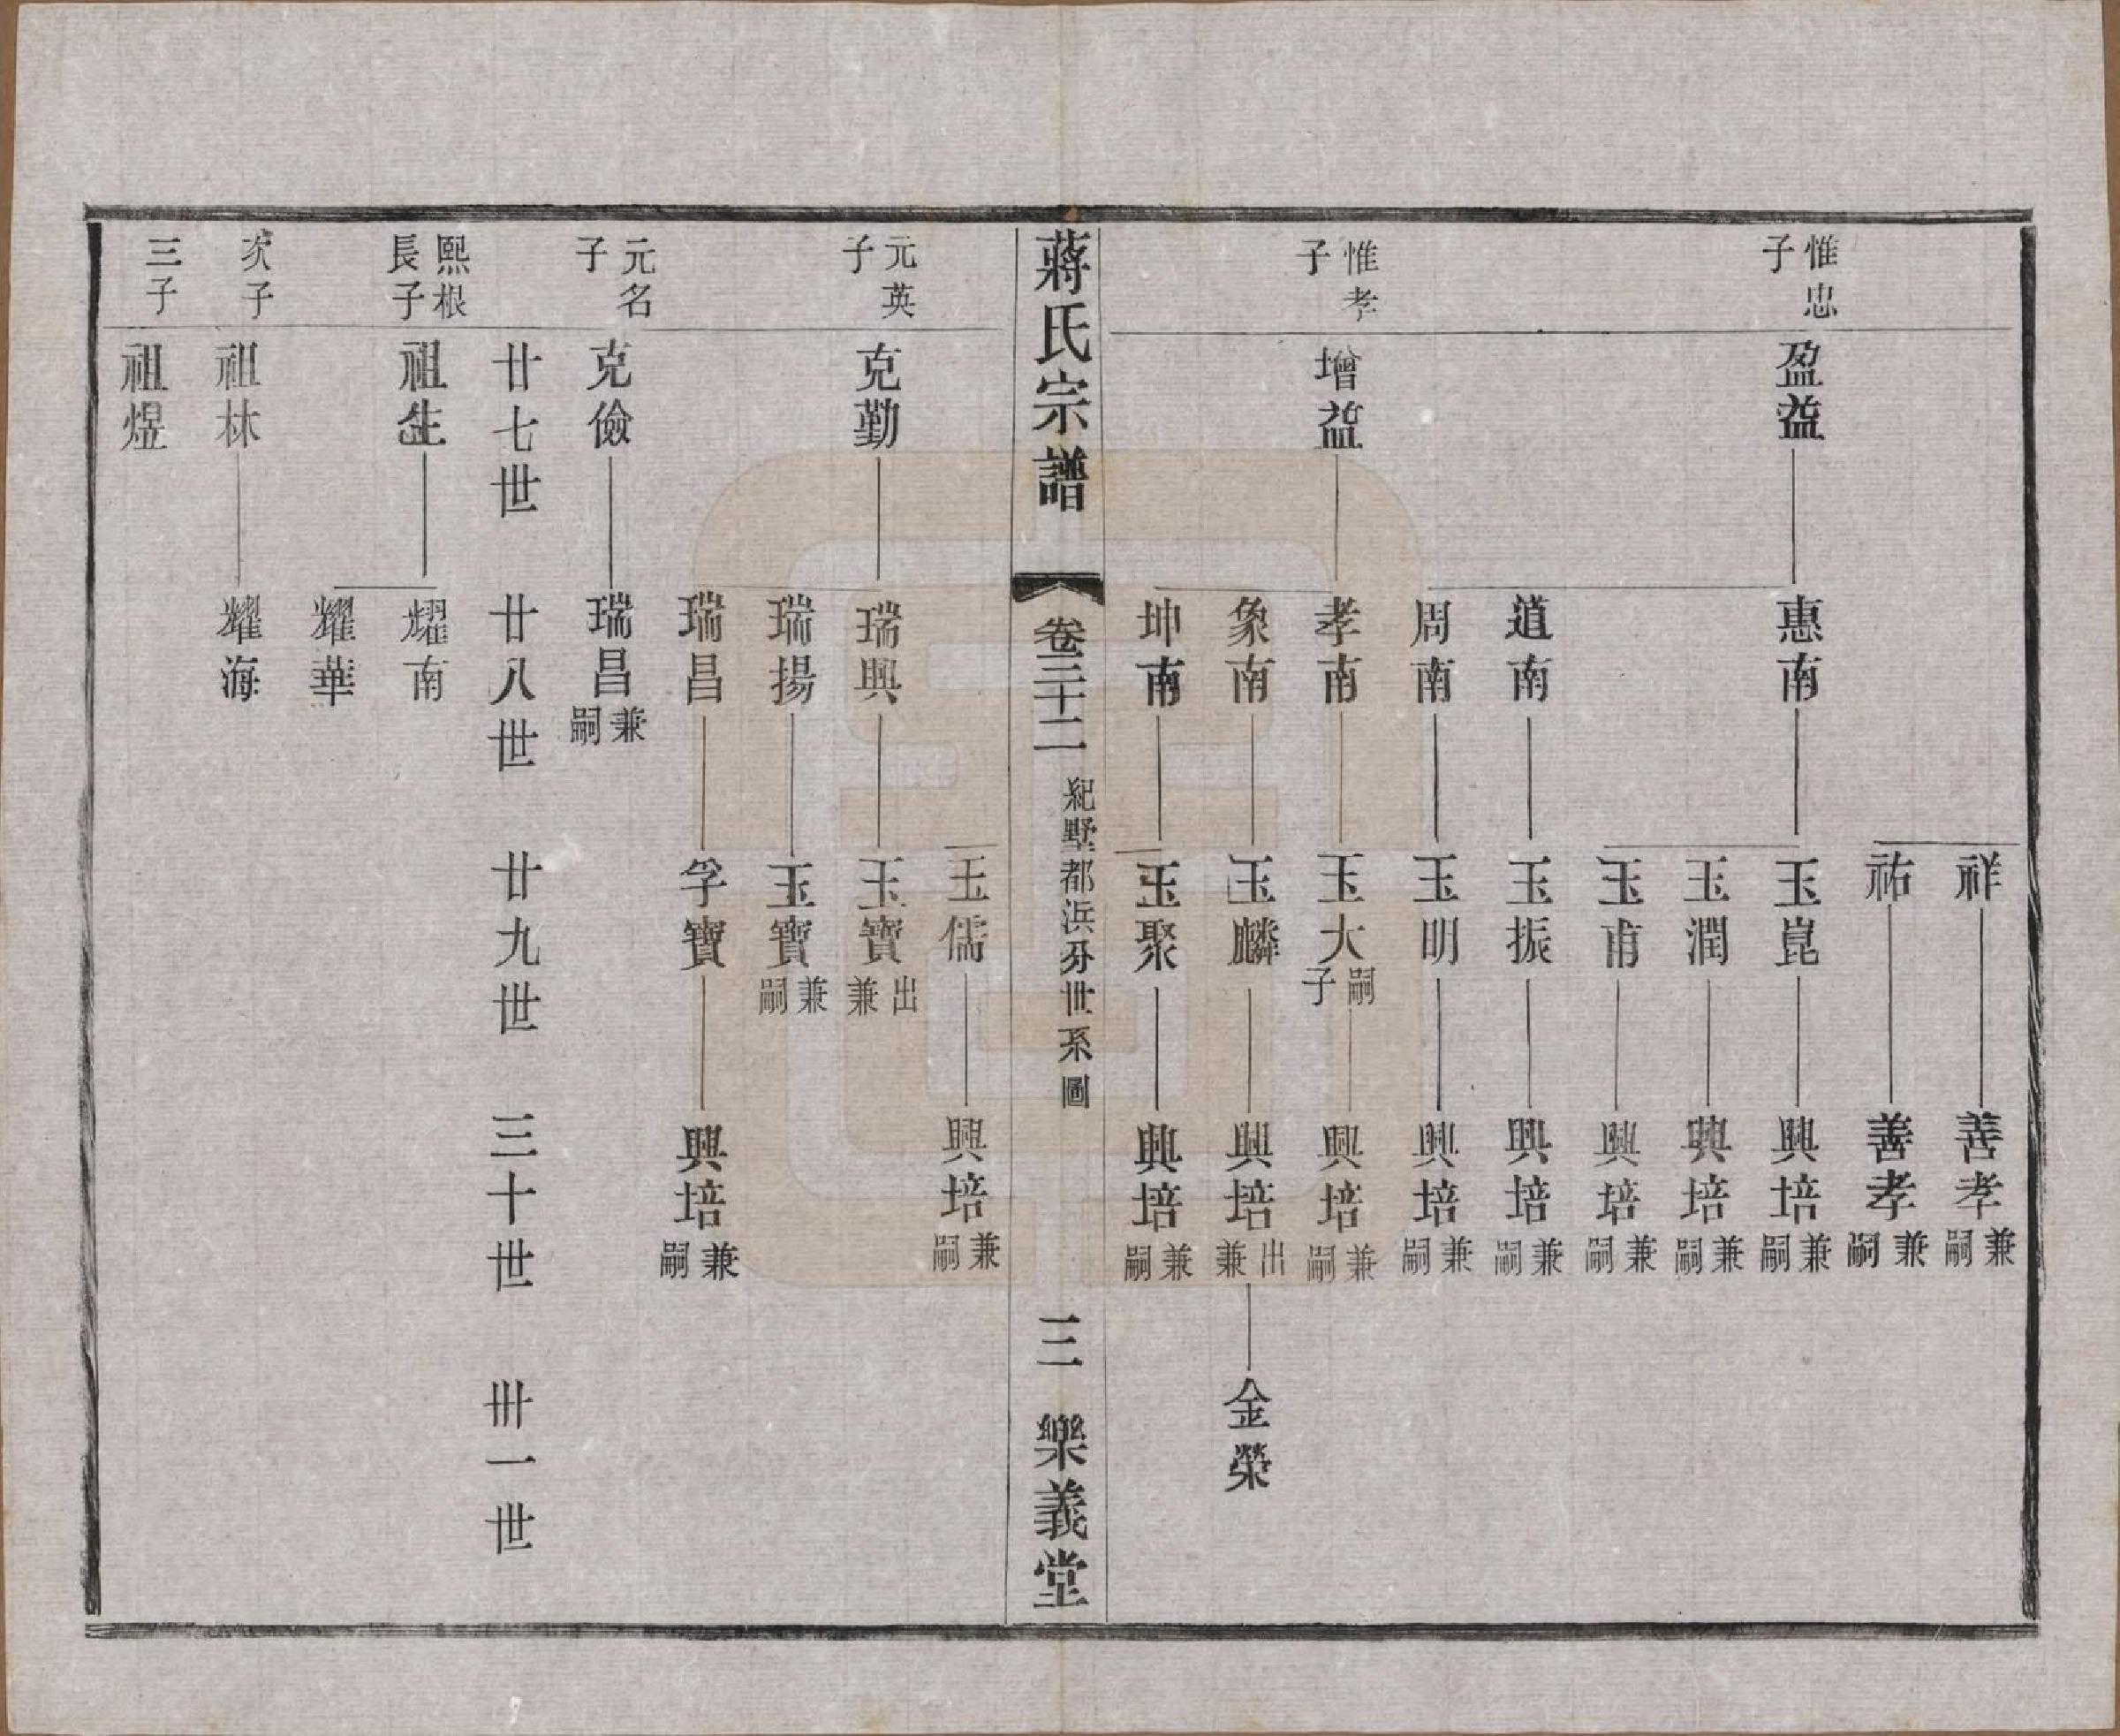 祥 善孝兼嗣
祐 善孝兼嗣
惟忠子 盈益 惠南 玉崑 興培兼嗣
玉潤 興培兼嗣
玉甫 興培兼嗣
道南 玉振 興培兼嗣
周南 玉明 興培兼嗣
惟孝子 增益 孝南 玉大嗣子 興培兼嗣
象南 玉麟 興培出兼 金榮
坤南 玉聚 興培兼嗣
蔣氏宗譜 卷三十二 紀墅都浜分世系圖 三 樂義堂
玉儒 興培兼嗣
元英子 克勤 瑞興 玉寶出兼
瑞揚 玉寶兼嗣
瑞昌 孚寶 興培兼嗣
元名子 克儉 瑞昌兼嗣
廿七世 廿八世 廿九世 三十世 卅一世
熙根長子 祖生 耀南
耀華
次子 祖林 耀海
三子 祖煜